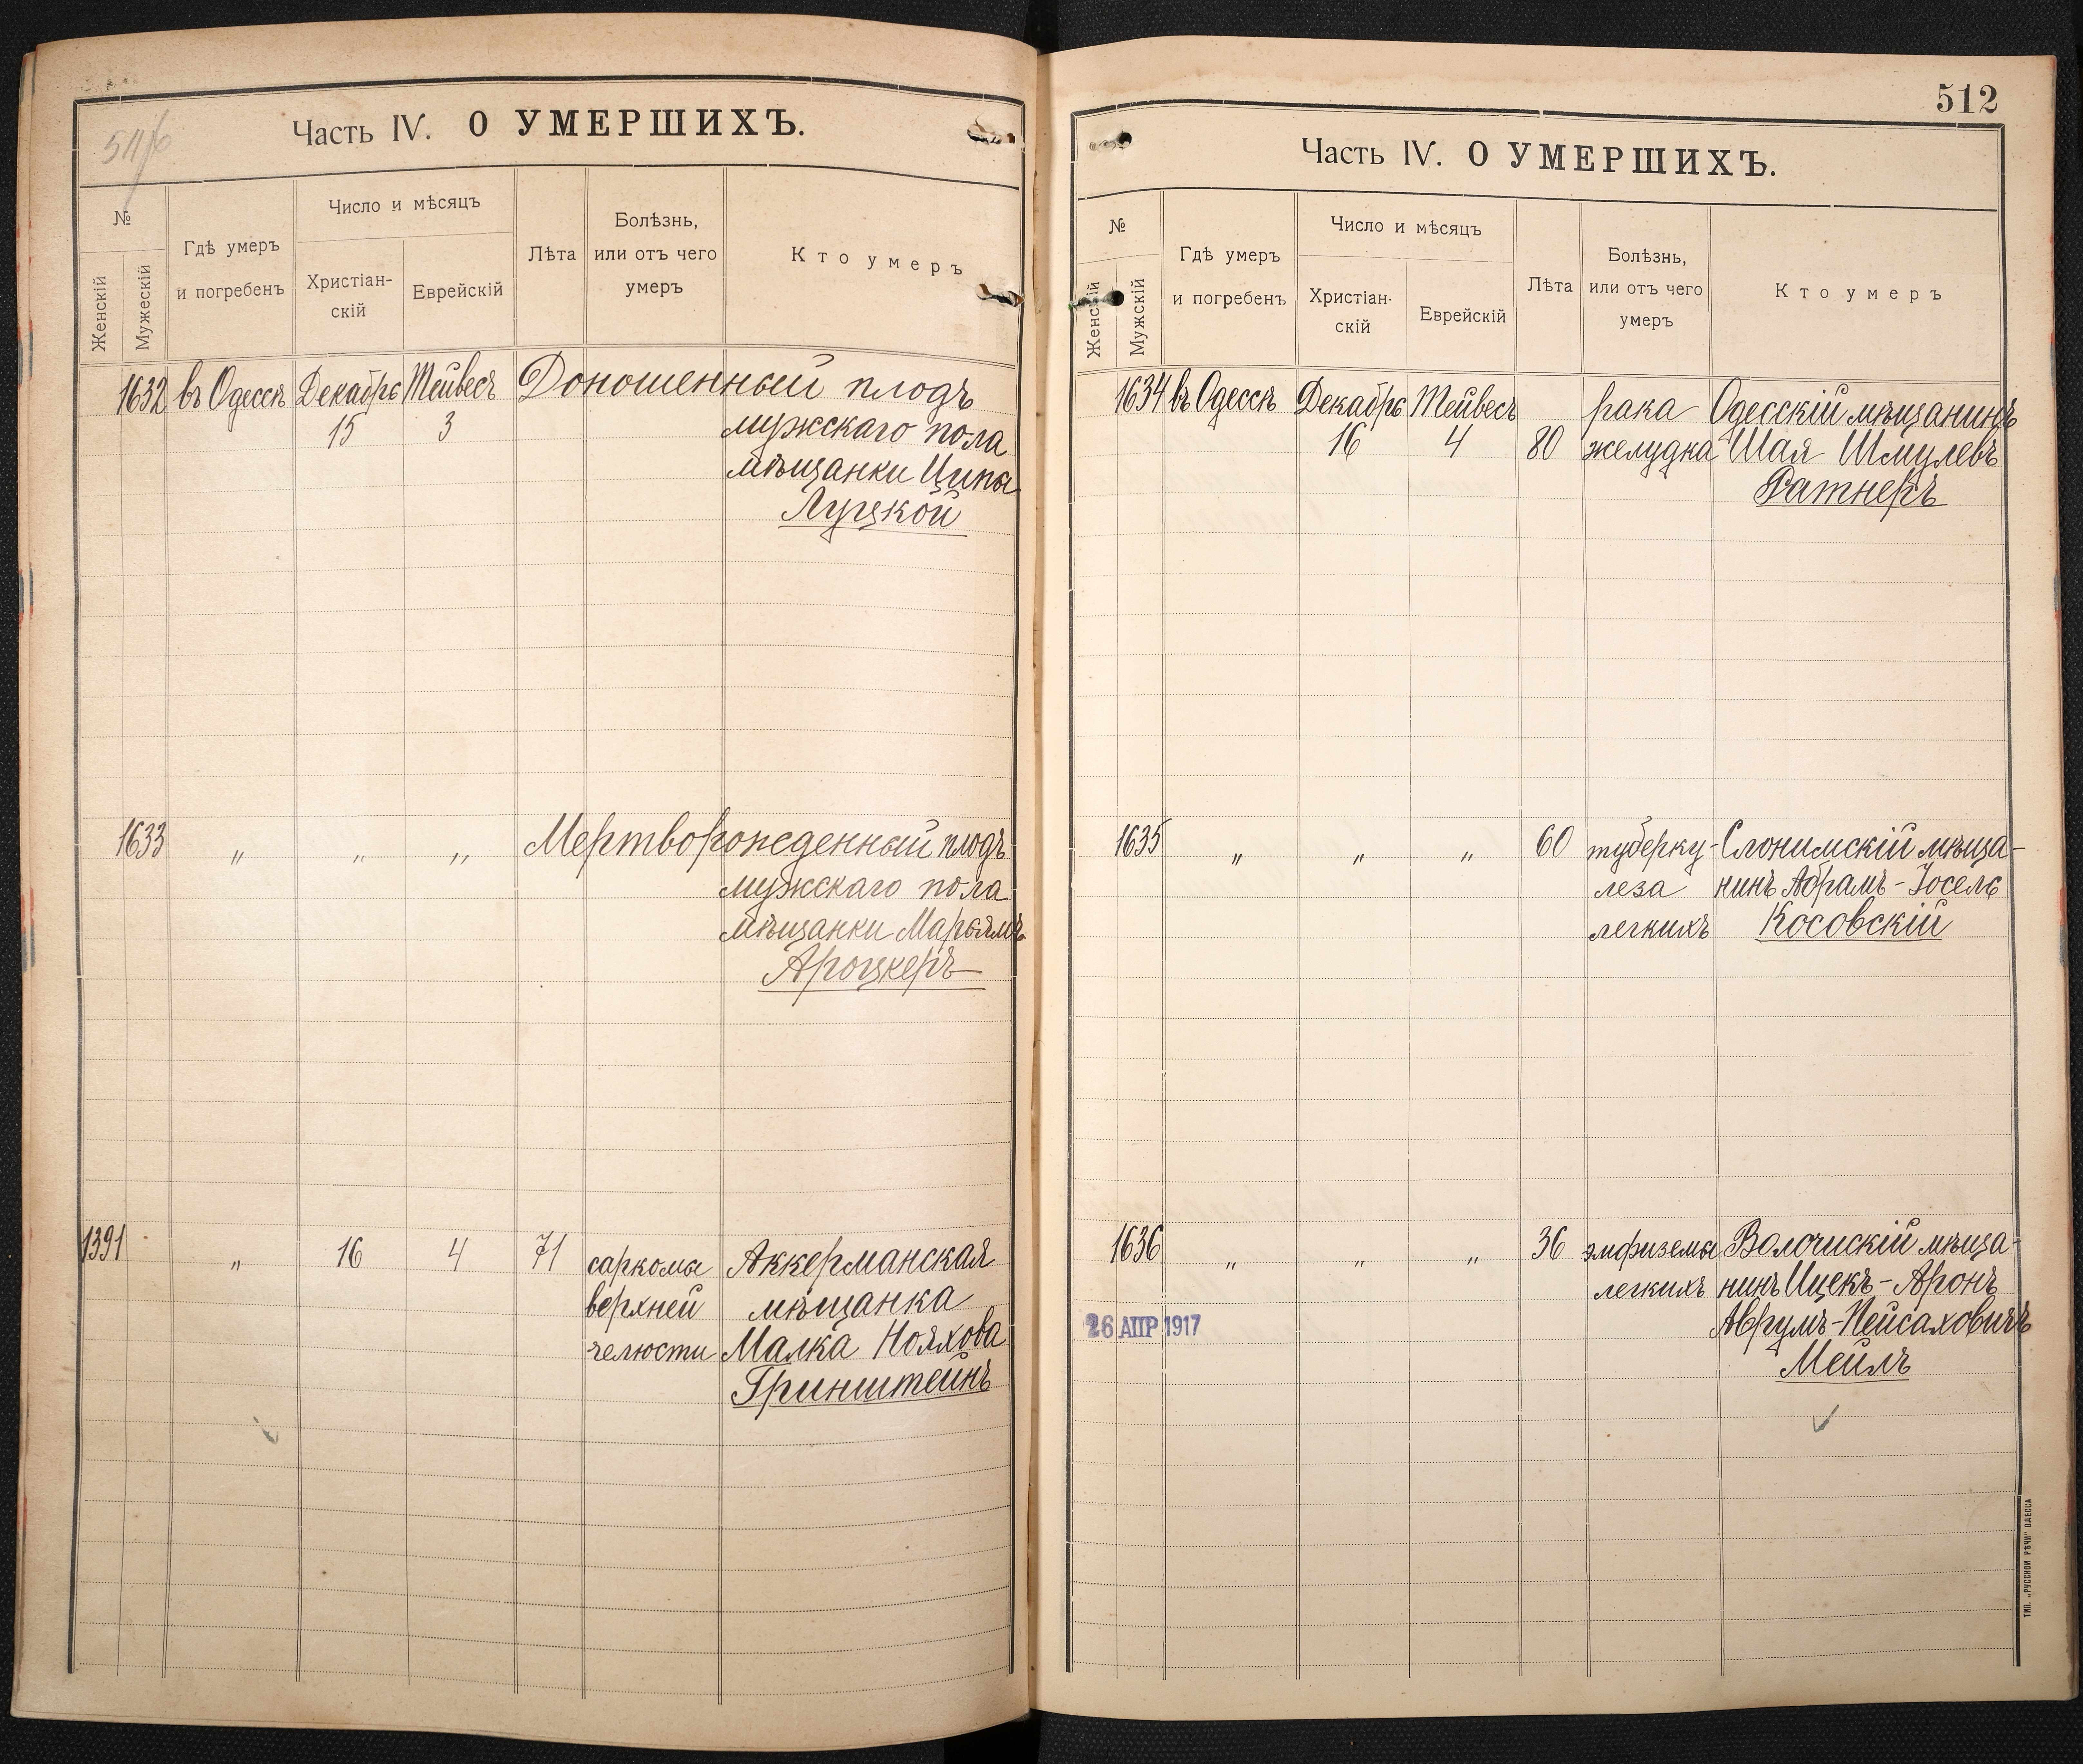 54/6
Часть IV. О УМЕРШИХЪ.
№
Женскій
Мужескій
Гдѣ умеръ
и погребенъ
Число и мѣсяцъ
Христіан-
скій
Еврейскій
Лѣта
Болѣзнь,
или отъ чего
умеръ
Кто умеръ
1632 въ Одессѣ Декабрь Тейвесъ Доношенный плодъ
15 3 мужскаго пола
мѣщанки Ципы
Луцкой
1633 " " " Мертворожденный плодъ
мужскаго пола
мѣщанки Марьямъ
Ароцкеръ
1391 " 16 4 71 саркомы Аккерманская
верхней мѣщанка
челюсти Малка Нояхова
Гринштейнъ
512
Часть IV. О УМЕРШИХЪ.
№
Женскій
Мужскій
Гдѣ умеръ
и погребенъ
Число и мѣсяцъ
Христіан-
скій
Еврейскій
Лѣта
Болѣзнь,
или отъ чего
умеръ
Кто умеръ
1634 въ Одессѣ Декабрь Тейвесъ рака Одесскій мѣщанинъ
16 4 80 желудка Шая Шмулевъ
Ратнеръ
1635 " " " 60 туберку- Слонимскій мѣща-
леза нинъ Абрамъ-Іосель
легкихъ Косовскій
1636 " " " 36 эмфиземы Волочискій мѣща-
легкихъ нинъ Ицекъ-Аронъ
26 АПР 1917 Аврумъ-Пейсаховичъ
Мейлъ
ТИП. „РУССКОЙ РѢЧИ" ОДЕССА